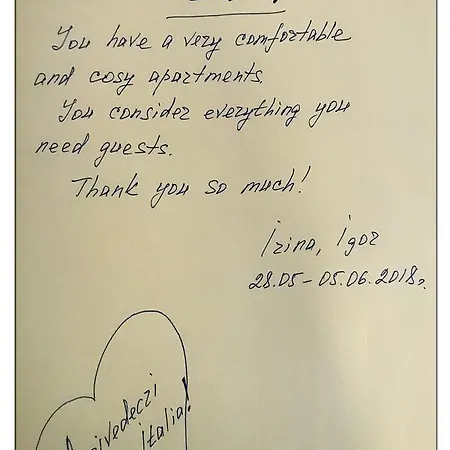 You have a very comfortable
and cosy apartments.
You consider everything you
need guests.
Thank you so much!
Irina, Igor
28.05-05.06.2018г.
Arrivedeczi
Italia!